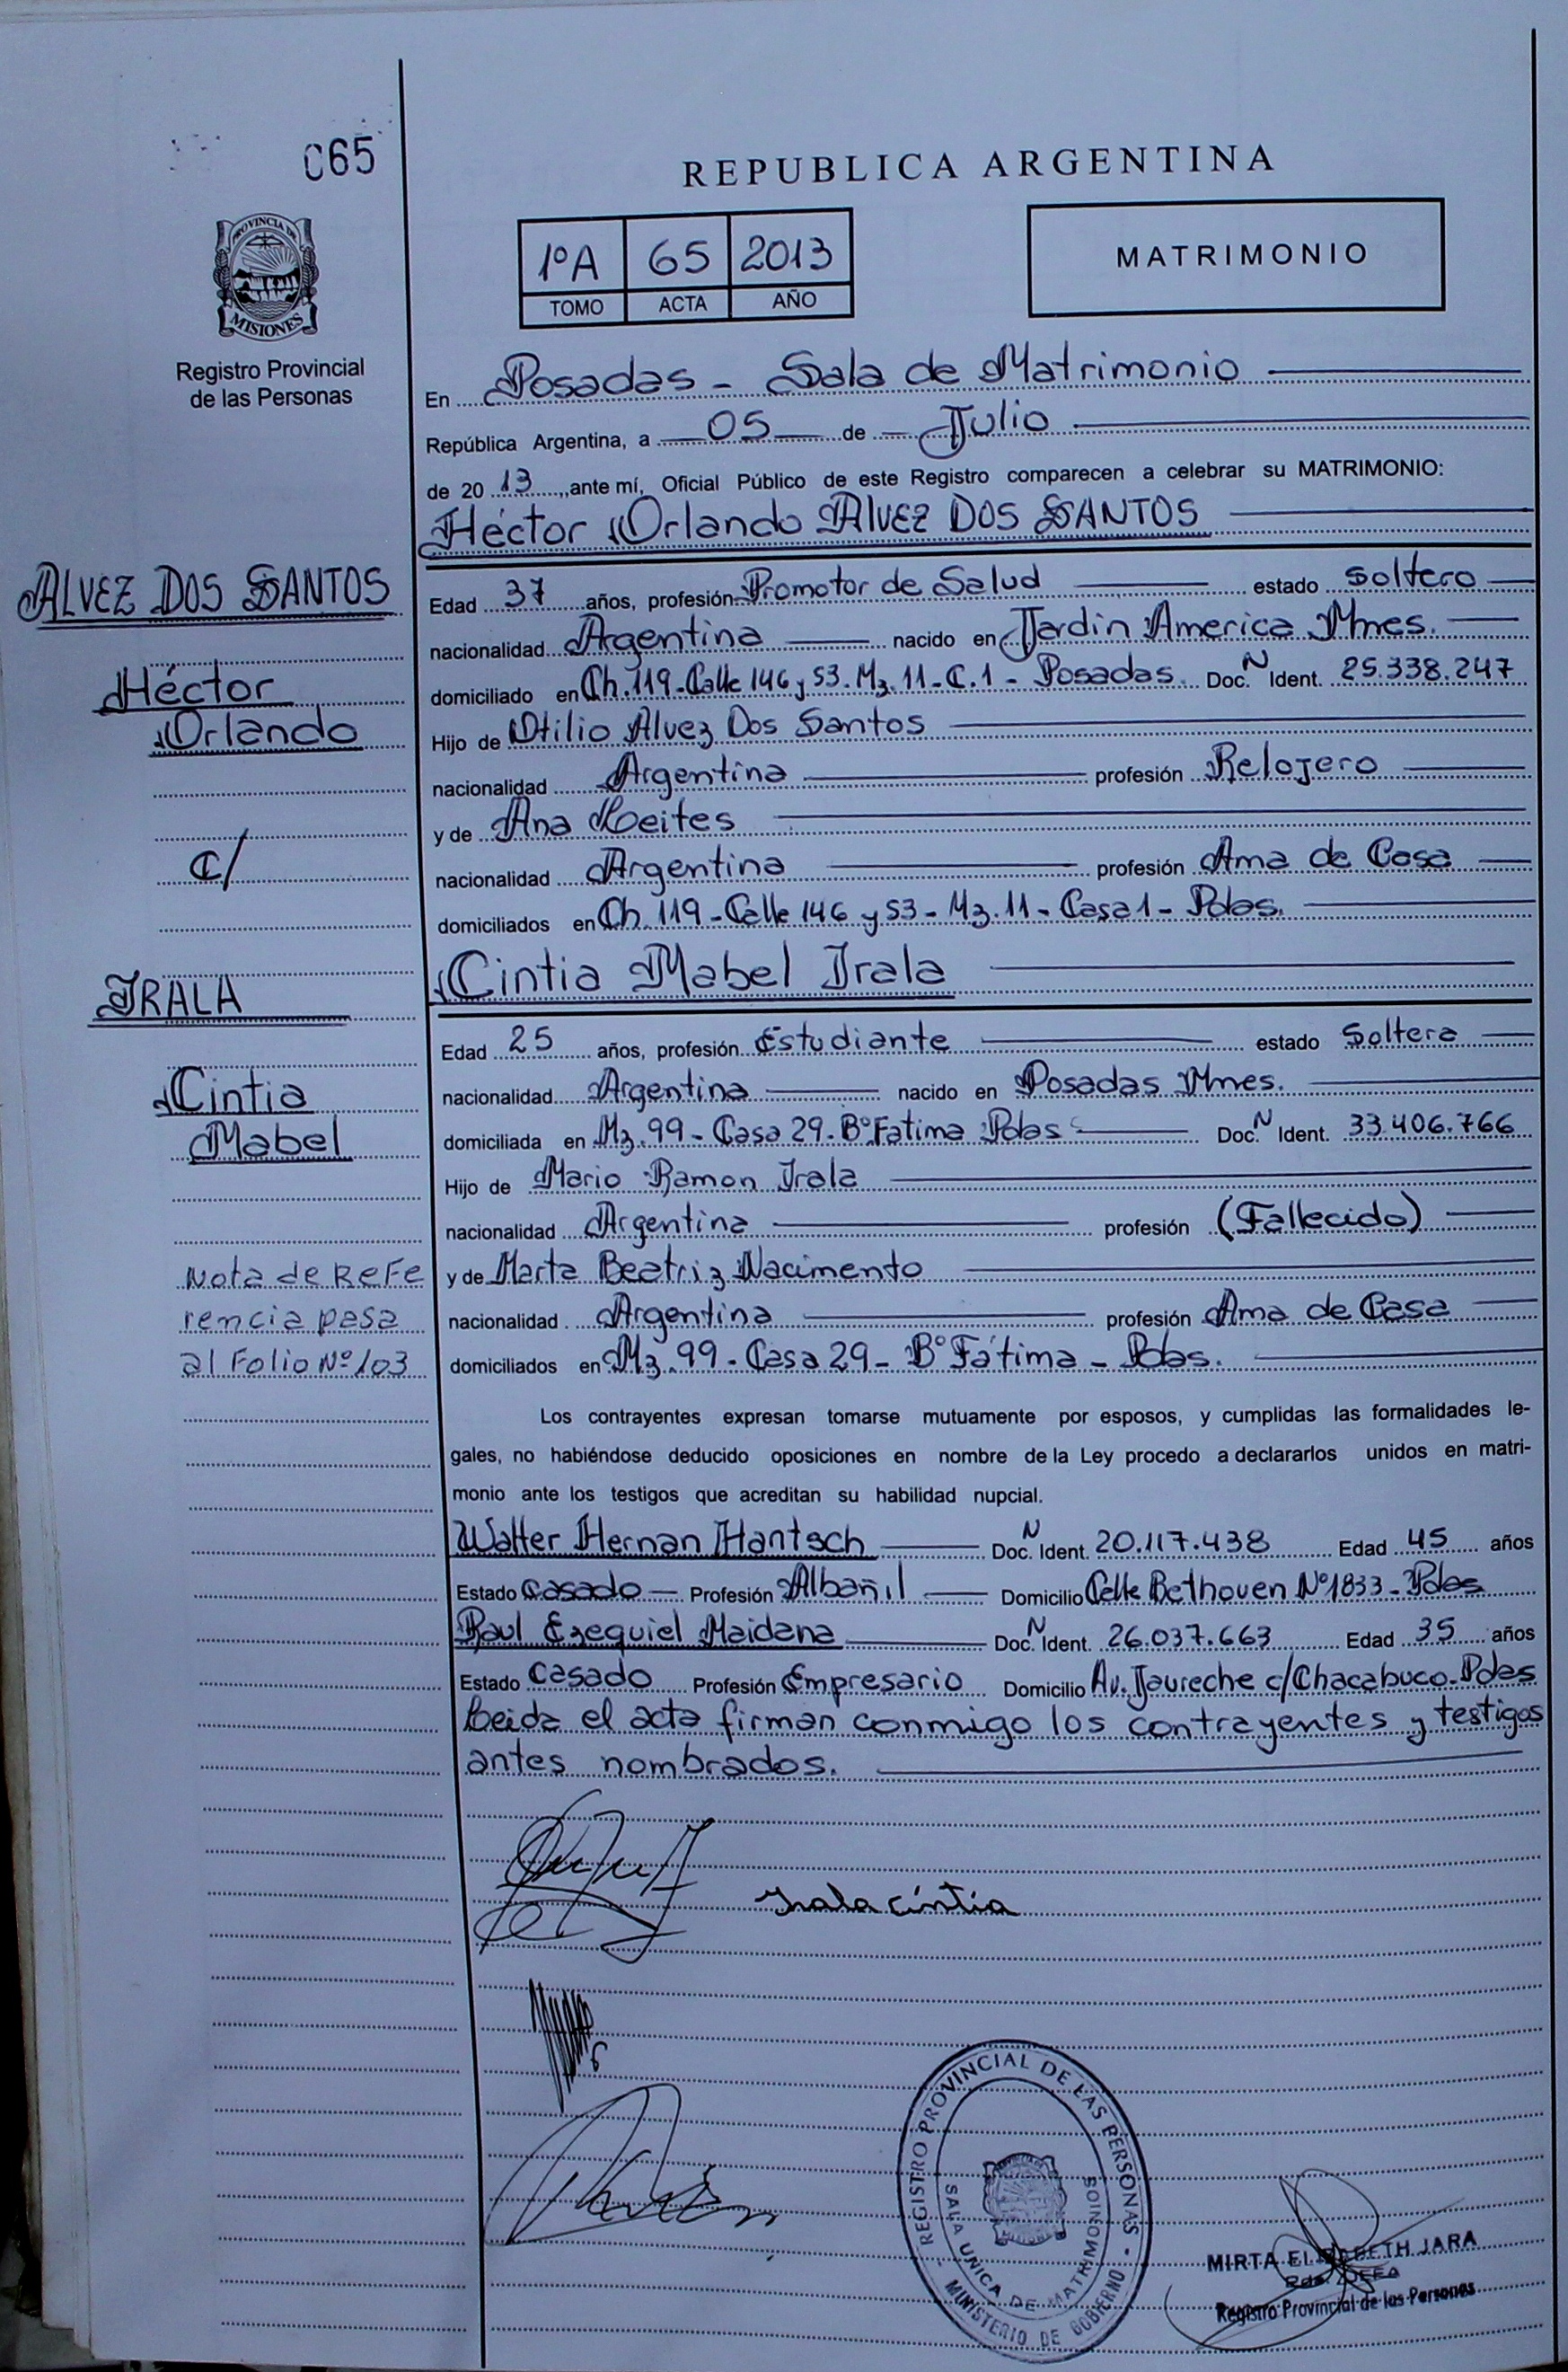 065
PROVINCIA DE
MISIONES
Registro Provincial
de las Personas
REPUBLICA ARGENTINA
1ºA 65 2013
TOMO ACTA AÑO
MATRIMONIO
En Posadas - Sala de Matrimonio
República Argentina, a 05 de Julio
de 20 13, ante mí, Oficial Público de este Registro comparecen a celebrar su MATRIMONIO:
Héctor Orlando Alvez DOS SANTOS
Edad 37 años, profesión Promotor de Salud estado Soltero
nacionalidad Argentina nacido en Jardin America Mnes.
domiciliado en Ch. 119-Calle 146 y 53. Mz. 11-C.1 - Posadas. Doc. N Ident. 25.338.247
Hijo de Otilio Alvez Dos Santos
nacionalidad Argentina profesión Relojero
y de Ana Leites
nacionalidad Argentina profesión Ama de Casa
domiciliados en Ch. 119-Calle 146 y 53 - Mz. 11 - Casa 1 - Pdas.
Cintia Mabel Irala
Edad 25 años, profesión Estudiante estado Soltera
nacionalidad Argentina nacido en Posadas Mnes.
domiciliada en Mz. 99 - Casa 29 - Bº Fatima Pdas Doc. N Ident. 33.406.766
Hijo de Mario Ramon Irala
nacionalidad Argentina profesión (Fallecido)
y de Marta Beatriz Nacimento
nacionalidad Argentina profesión Ama de Casa
domiciliados en Mz. 99 - Casa 29 - Bº Fátima - Pdas.
Los contrayentes expresan tomarse mutuamente por esposos, y cumplidas las formalidades le-
gales, no habiéndose deducido oposiciones en nombre de la Ley procedo a declararlos unidos en matri-
monio ante los testigos que acreditan su habilidad nupcial.
Walter Hernan Hantsch Doc. N Ident. 20.117.438 Edad 45 años
Estado Casado Profesión Albañil Domicilio Calle Bethoven Nº 1833 - Pdas
Raul Ezequiel Maidana Doc. N Ident. 26.037.663 Edad 35 años
Estado Casado Profesión Empresario Domicilio Av. Jaureche c/Chacabuco - Pdas
Leida el acta firman conmigo los contrayentes y testigos
antes nombrados.
ALVEZ DOS SANTOS
Héctor
Orlando
C/
IRALA
Cintia
Mabel
Nota de Refe
rencia pasa
al Folio Nº 103
Irala Cintia
REGISTRO PROVINCIAL DE LAS PERSONAS
MINISTERIO DE GOBIERNO
SALA UNICA DE MATRIMONIOS
MIRTA ELIZABETH JARA
Registro Provincial de las Personas